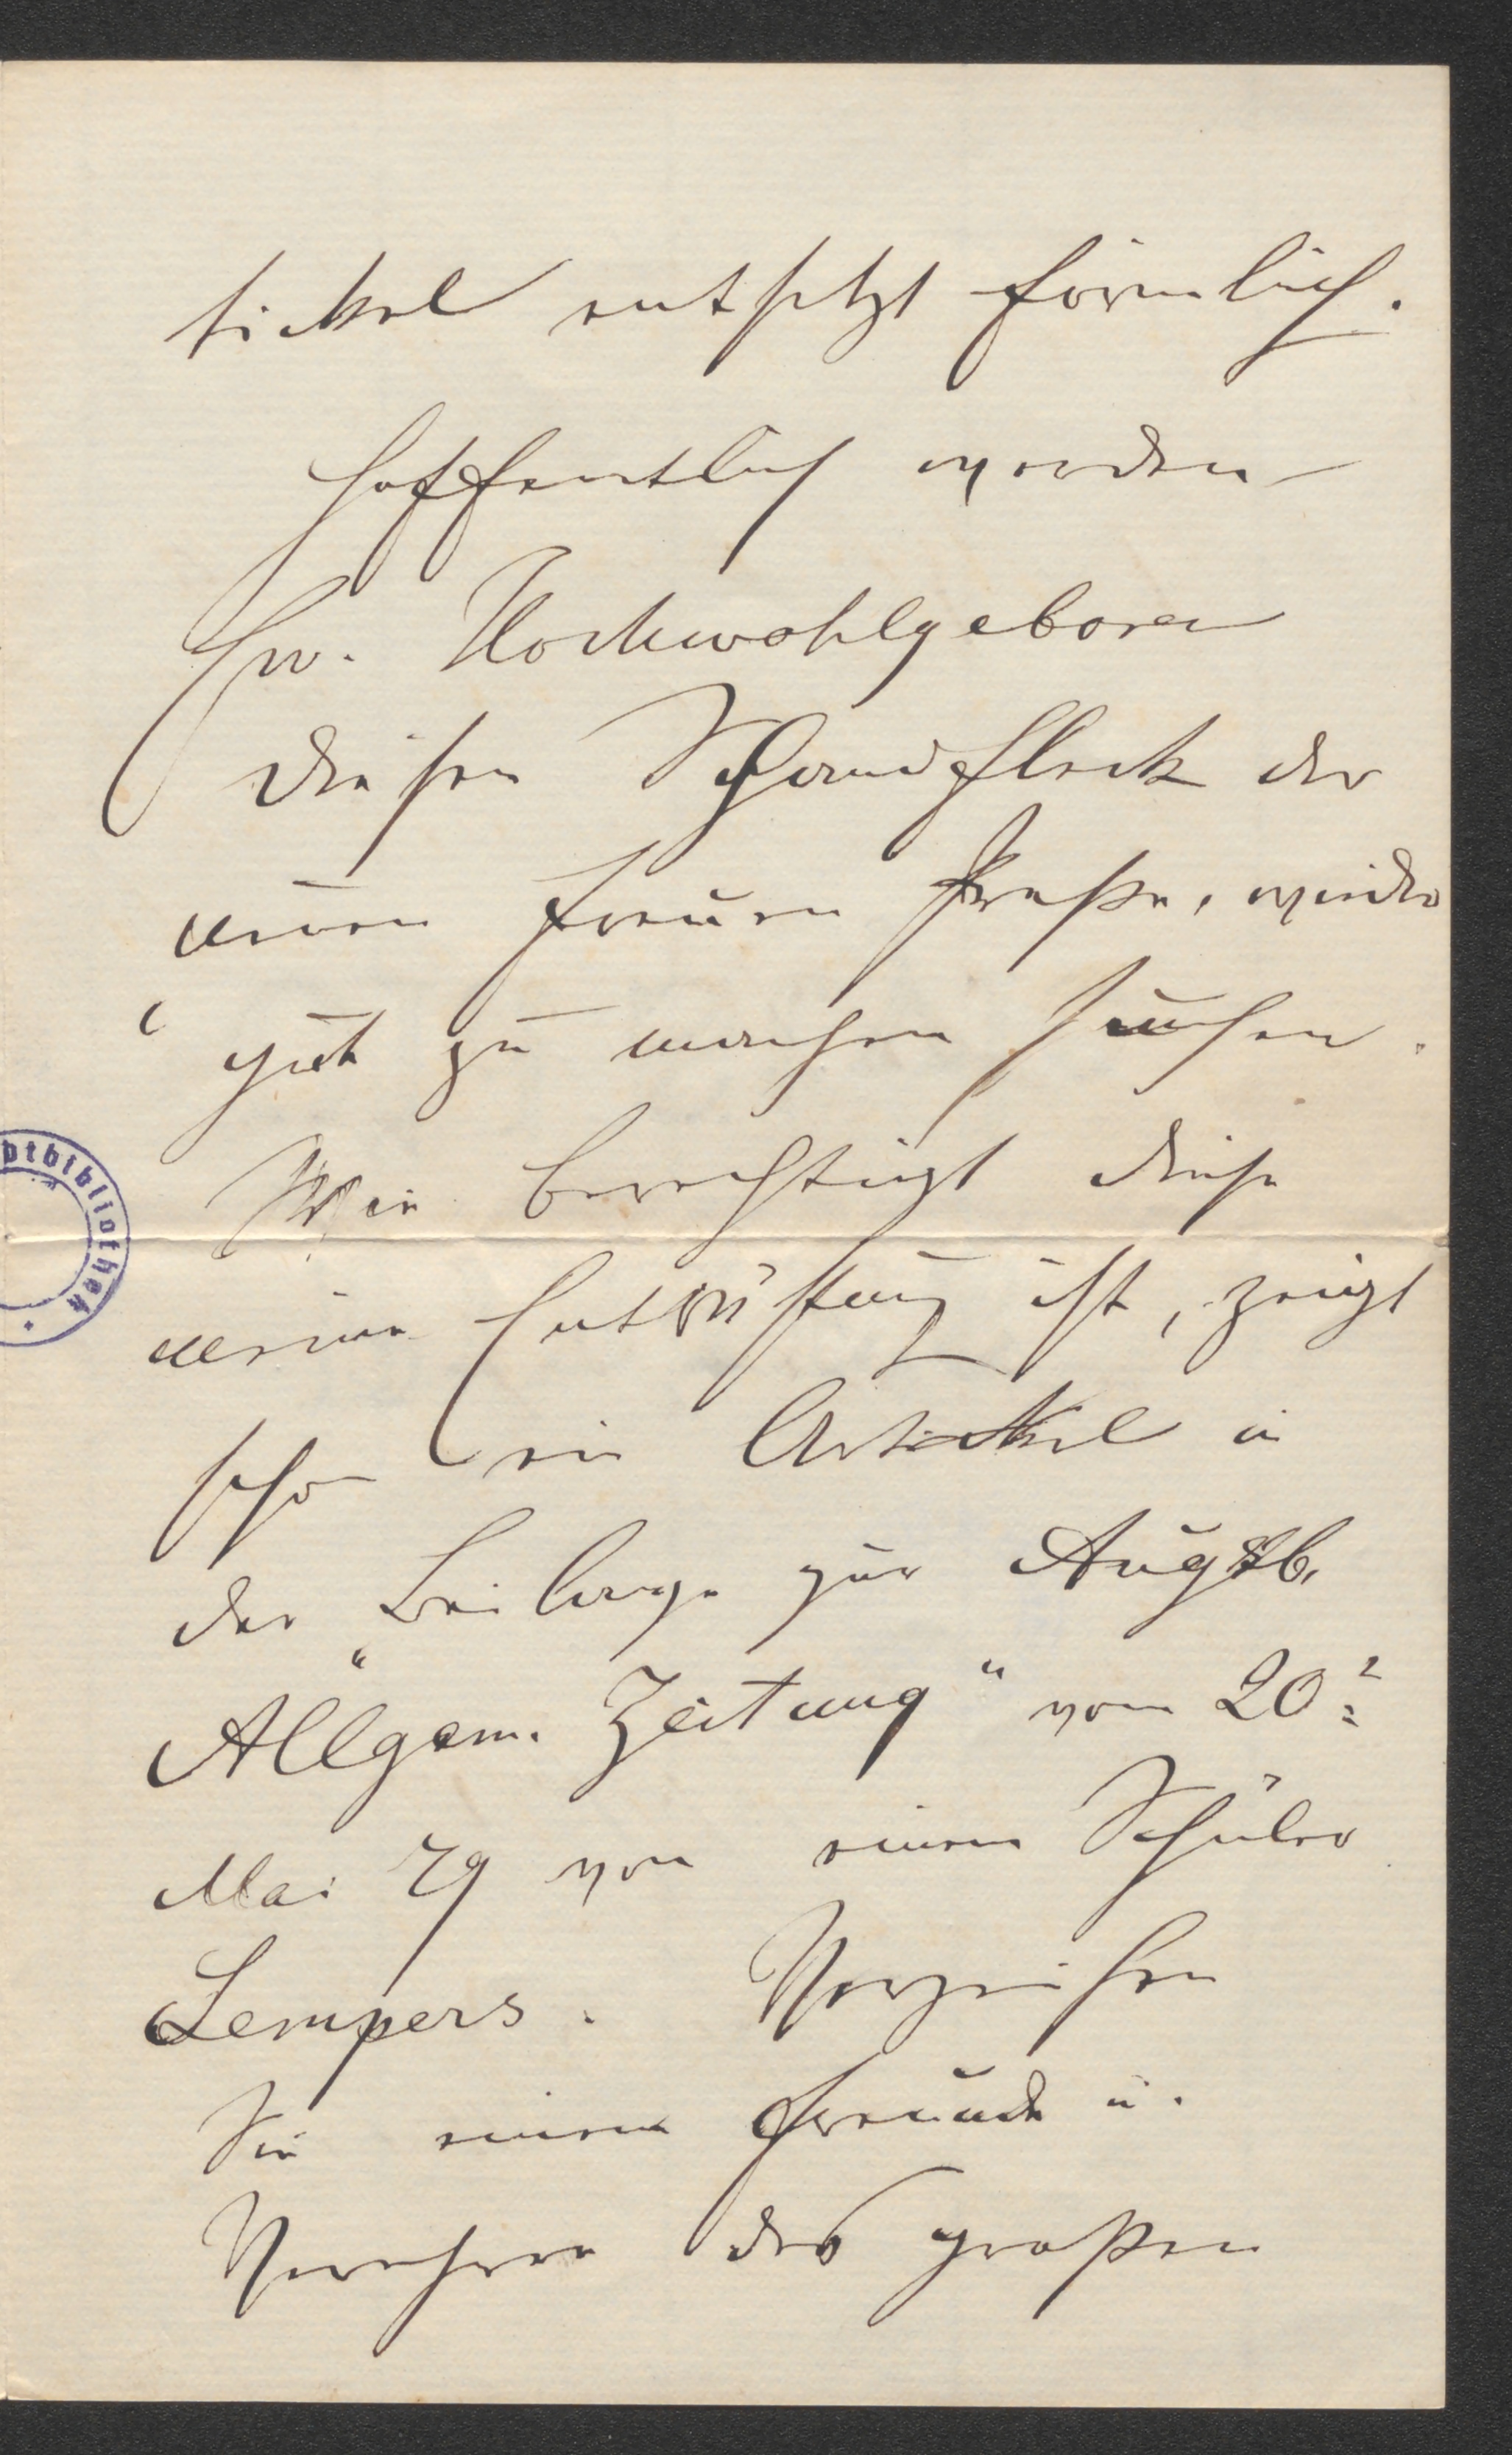 tikel entsetzt förmlich.
Hoffentlich werden
Ew. Hochwohlgeboren
diesen Schandfleck der
neuen freien Presse, wieder
gut zu machen suchen.
Wie berechtigt diese
meine Entrüstung ist, zeigt
schon ein Artikel in
der Beilage zur Augsb.
"Allgem. Zeitung" vom 20t
Mai 79 von einem Schüler
Sempers. Verzeihen
Sie einem Freunde u.
Verehrer des großen
btbibliothek